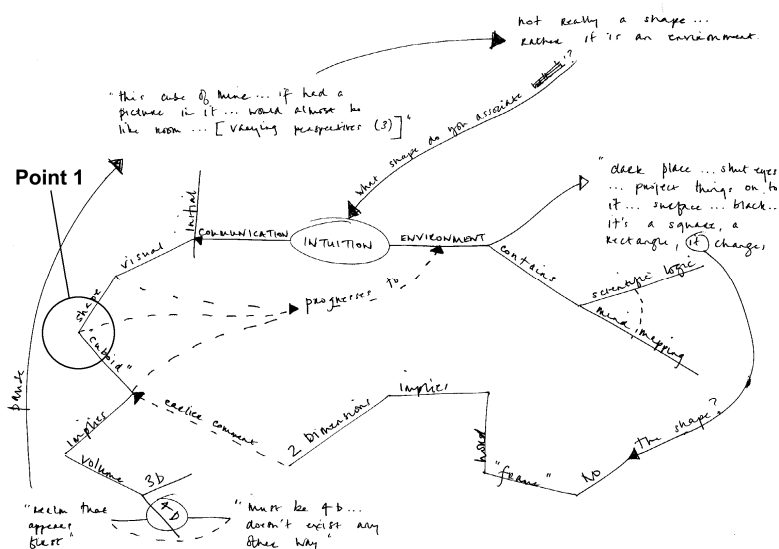 not really a shape...
rather it is an environment.
"this cube of mine... if had a
picture in it... would almost be
like room... [varying perspectives (3)]"
what shape do you associate ?
Point 1
"dark place... shut eyes
... project things on to
it... surface... black...
it's a square, a
rectangle, it changes
initial
COMMUNICATION
INTUITION
ENVIRONMENT
visual
contains
shape
scientific logic
progresses to
mind mapping
"cuboid"
pause
implies
earlier comment
2 Dimensions
implies
the shape?
implies
word
"frame"
No
volume
3D
4D
"realm that
appears
first"
"must be 4D...
doesn't exist any
other way"